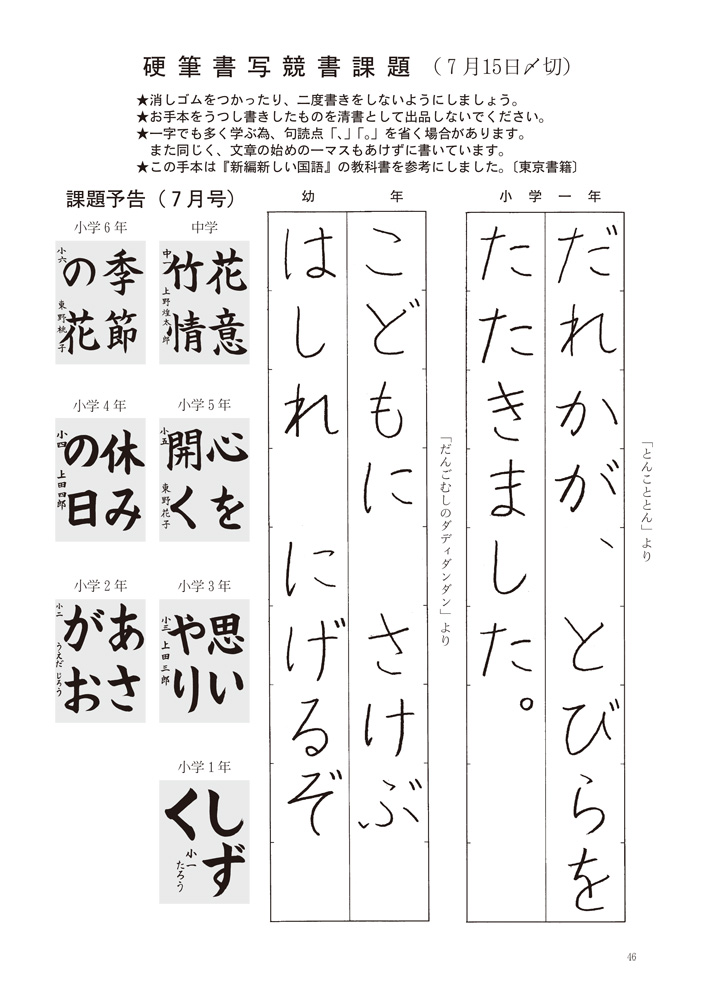 硬筆書写競書課題（７月15日〆切）
★消しゴムをつかったり、二度書きをしないようにしましょう。
★お手本をうつし書きしたものを清書として出品しないでください。
★一字でも多く学ぶ為、句読点「、」「。」を省く場合があります。
また同じく、文章の始めの一マスもあけずに書いています。
★この手本は『新編新しい国語』の教科書を参考にしました。〔東京書籍〕
小学一年
だれかが、とびらを
たたきました。
「とんこととん」より
幼年
こどもに さけぶ
はしれ にげるぞ
「だんごむしのダディダンダン」より
課題予告（７月号）
中学
花意
竹情
中一 上野煌太郎
小学６年
季節
の花
小六 東野桃子
小学５年
心を
開く
小五 東野花子
小学４年
休み
の日
小四 上田四郎
小学３年
思い
やり
小三 上田三郎
小学２年
あさ
がお
小二 うえだじろう
小学１年
しず
く
小一 たろう
46